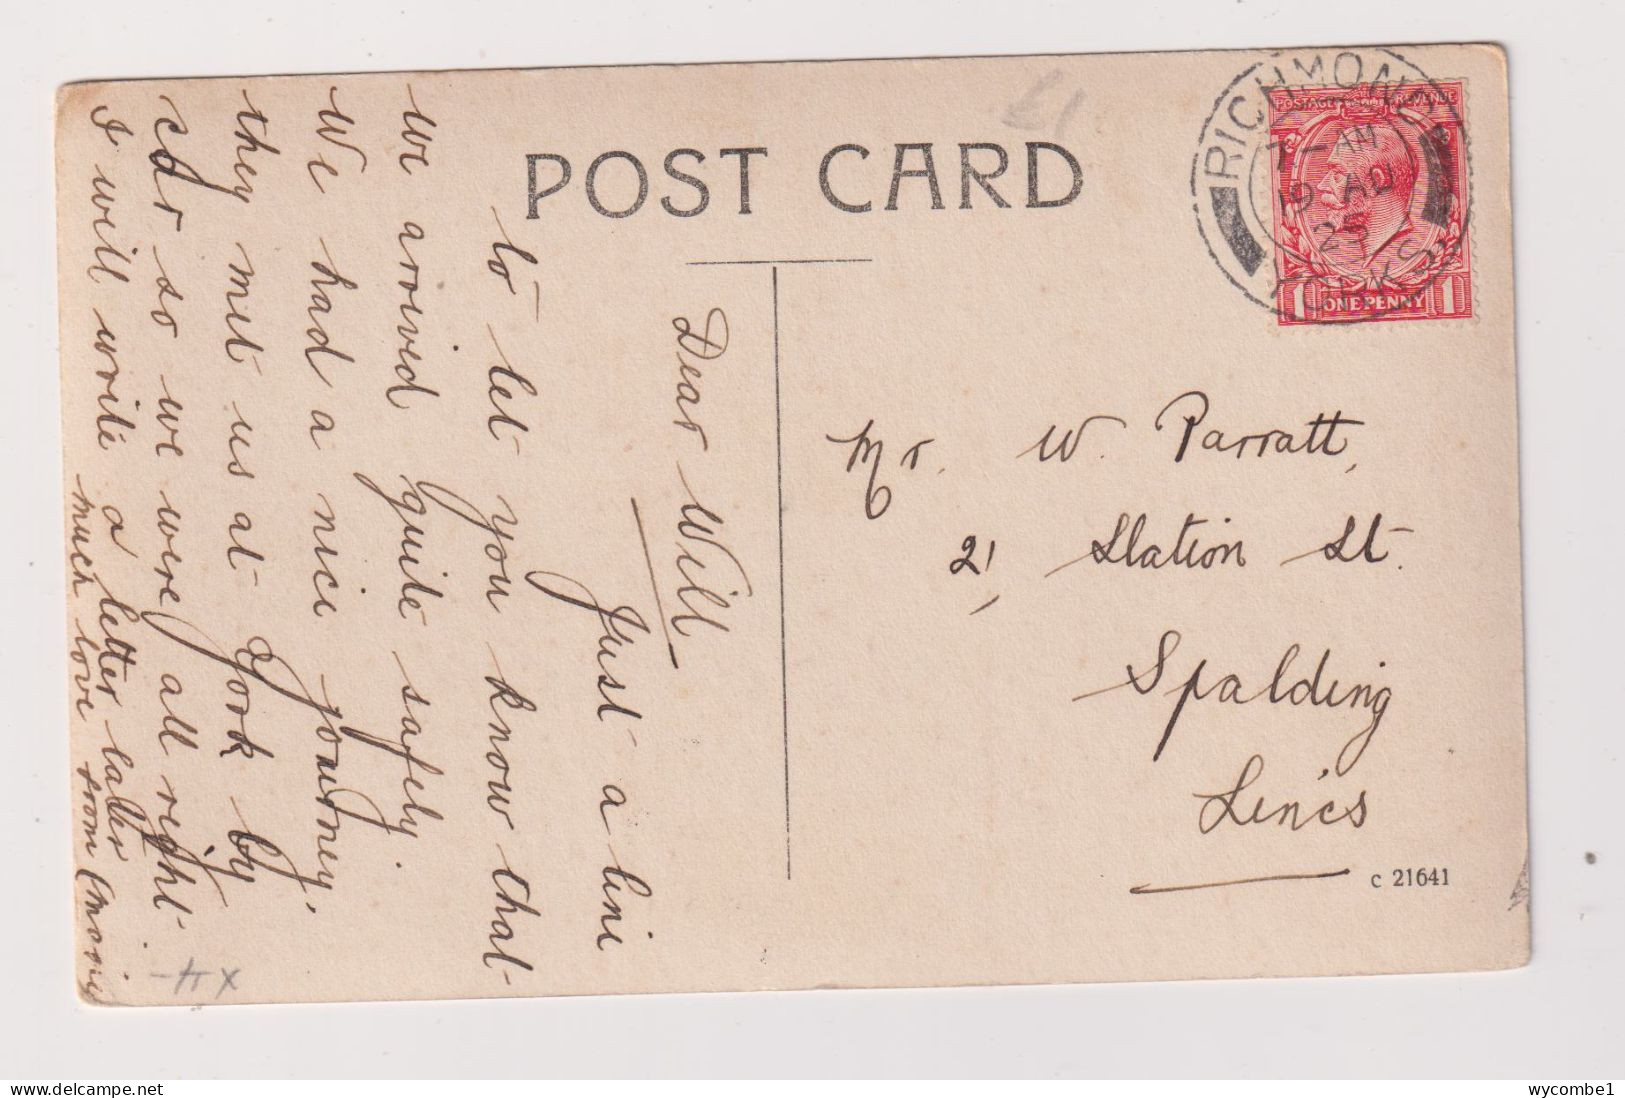 POST CARD
RICHMOND
YORKS
7-AM
19 AU
25
POSTAGE REVENUE
1 ONE PENNY 1
£1
Dear Will
Just a line
to let you know that
we arrived quite safely.
We had a nice journey,
they met us at York by
car so we were all right.
I will write a letter later
much love from
Mr. W. Parratt,
21, Station St.
Spalding
Lincs
C 21641
wycombe1